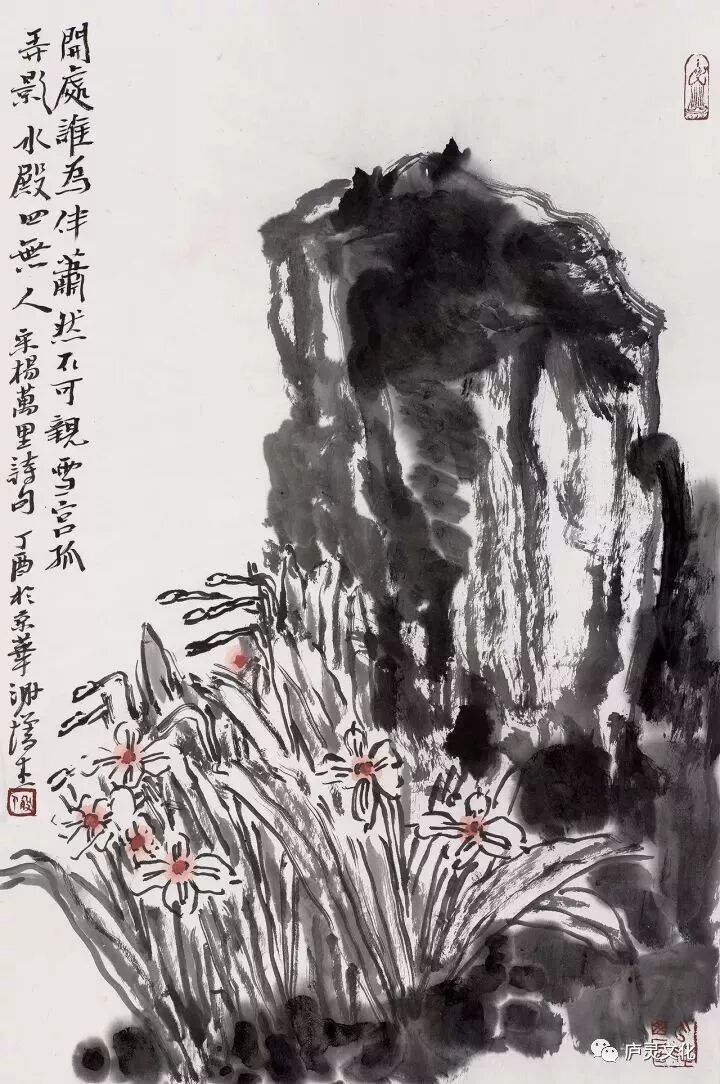 開處誰為伴蕭然不可親雪宮孤
弄影水殿四無人 宋楊萬里詩句 丁酉於京華
庐灵文化